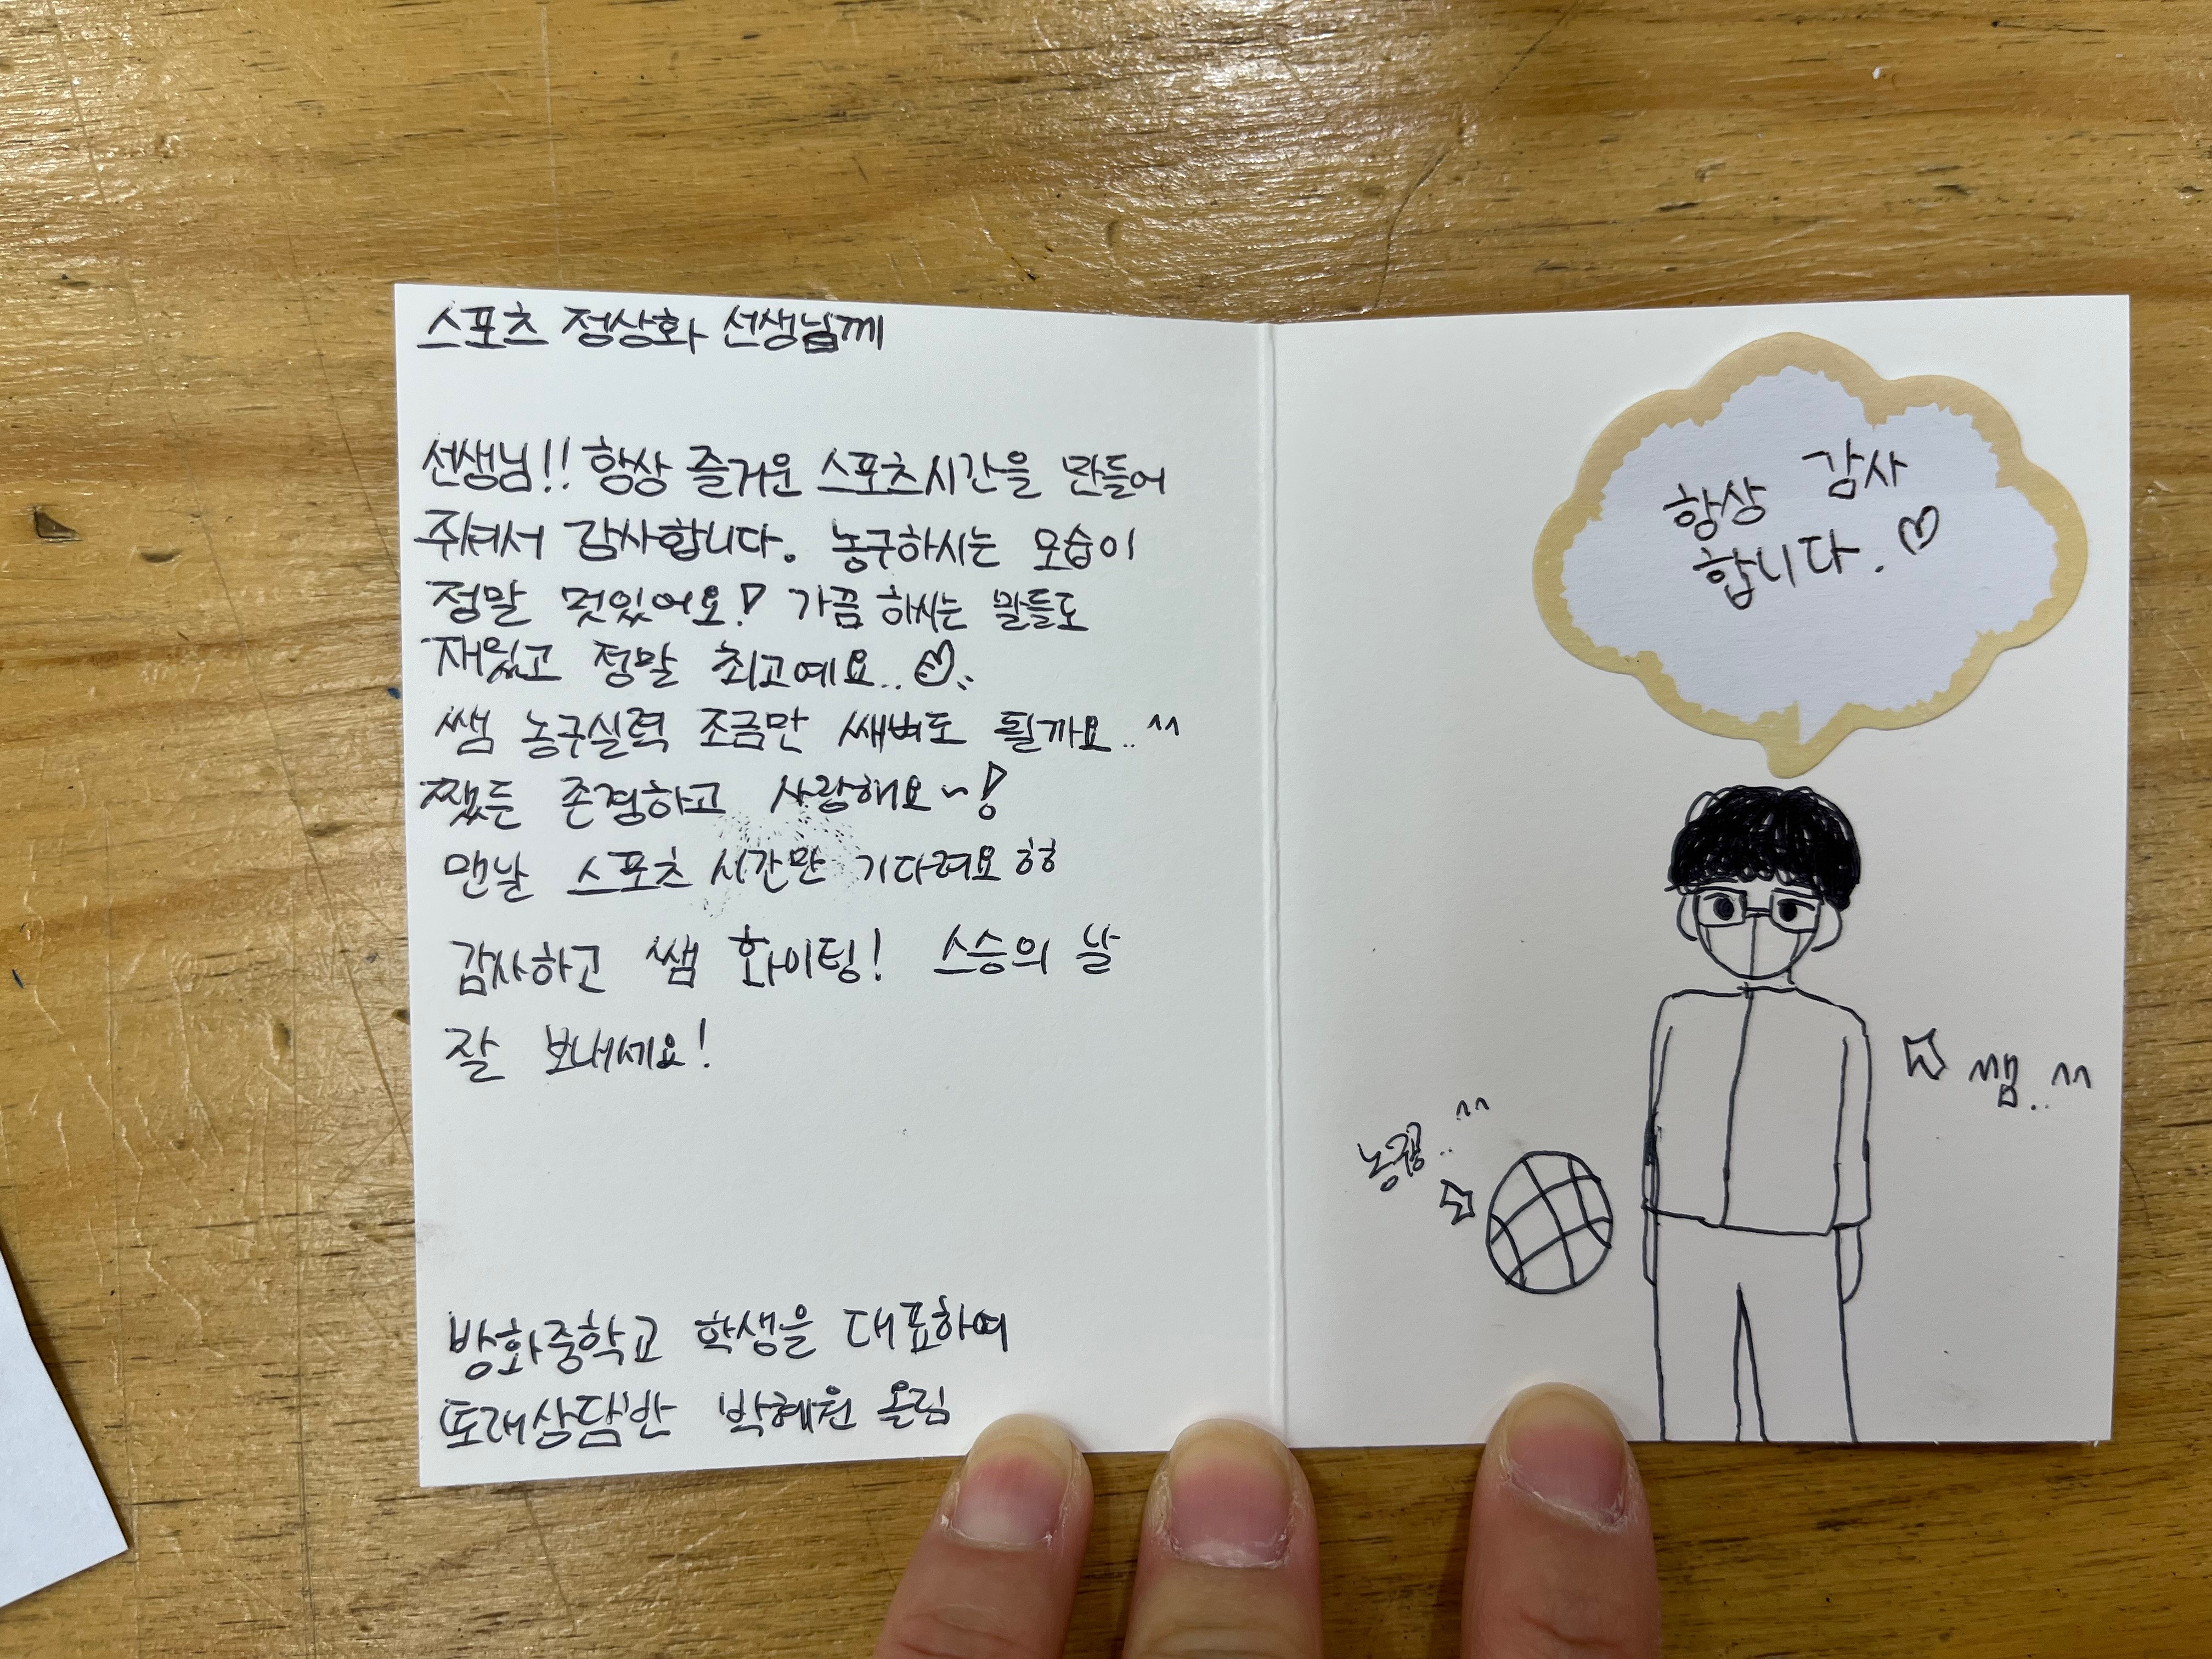 스포츠 정상화 선생님께
선생님!! 항상 즐거운 스포츠시간을 만들어
주셔서 감사합니다. 농구하시는 모습이
정말 멋있어요! 가끔 하시는 말들도
재밌고 정말 최고예요..♡..
쌤 농구실력 조금만 쌔벼도 될까요..^^
쨌든 존경하고 사랑해요~!
맨날 스포츠 시간만 기다려요ㅎㅎ
감사하고 쌤 화이팅! 스승의 날
잘 보내세요!
방화중학교 학생을 대표하여
또래상담반 박혜원 올림
항상 감사
합니다.♡
쌤..^^
농구공..^^